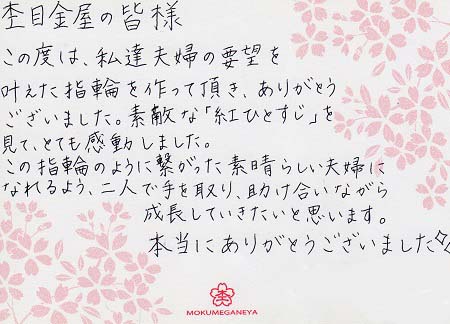 杢目金屋の皆様
この度は、私達夫婦の要望を
叶えた指輪を作って頂き、ありがとう
ございました。素敵な「紅ひとすじ」を
見て、とても感動しました。
この指輪のように繋がった素晴らしい夫婦に
なれるよう、二人で手を取り、助け合いながら
成長していきたいと思います。
本当にありがとうございました
MOKUMEGANEYA